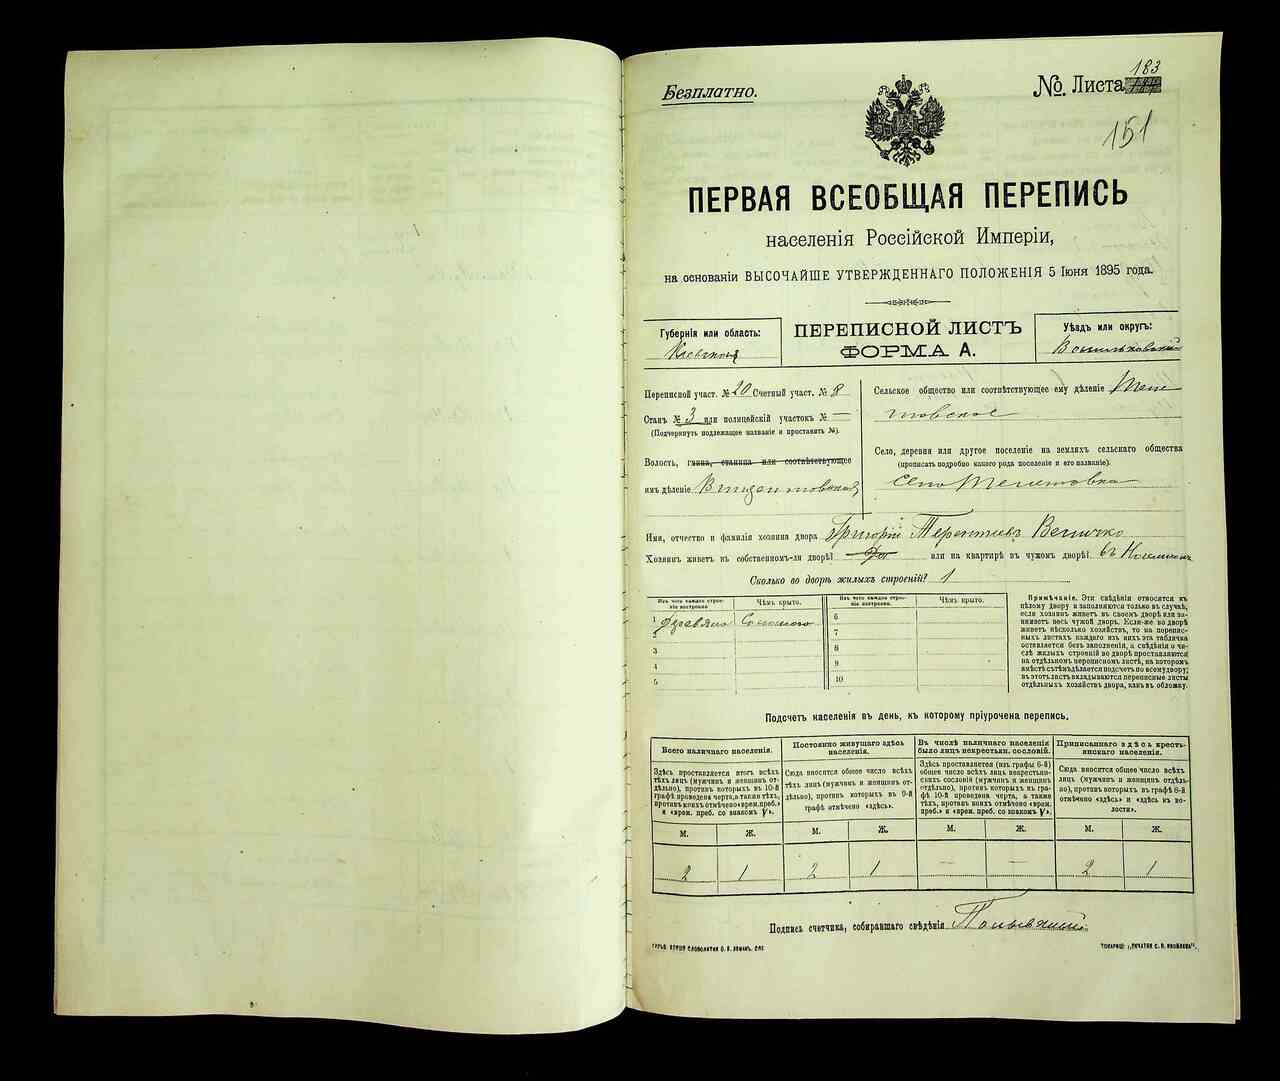 Безплатно.
№. Листа 183
151
ПЕРВАЯ ВСЕОБЩАЯ ПЕРЕПИСЬ
населенія Россійской Имперіи,
на основаніи ВЫСОЧАЙШЕ УТВЕРЖДЕННАГО ПОЛОЖЕНІЯ 5 Іюня 1895 года.
Губернія или область:
Кіевская
ПЕРЕПИСНОЙ ЛИСТЪ
ФОРМА А.
Уѣздъ или округъ:
Васильковскій
Переписной участ. № 20 Счетный участ. № 8
Станъ № 3 или полицейскій участокъ № —
(Подчеркнуть подлежащее названіе и проставить №).
Волость, гмина, станица или соотвѣтствующее
имъ дѣленіе
Сельское общество или соотвѣтствующее ему дѣленіе Теле
товское
Село, деревня или другое поселеніе на земляхъ сельскаго общества
(прописать подробно какого рода поселеніе и его названіе).
село Телешовка
Имя, отчество и фамилія хозяина двора Григорій Терентіевъ Величко
Хозяинъ живетъ въ собственномъ-ли дворѣ? Да или на квартирѣ въ чужомъ дворѣ? въ
Сколько во дворѣ жилыхъ строеній? 1
Изъ чего каждое строеніе построено
Чѣмъ крыто.
Изъ чего каждое строеніе построено.
Чѣмъ крыто.
1 деревяно Соломою
2
3
4
5
6
7
8
9
10
Примѣчаніе. Эти свѣдѣнія относятся къ
цѣлому двору и заполняются только въ случаѣ,
если хозяинъ живетъ въ своемъ дворѣ или занимаетъ
весь чужой дворъ. Если-же во дворѣ
живетъ нѣсколько хозяйствъ, то на переписныхъ
листахъ каждаго изъ нихъ эта табличка
оставляется безъ заполненія, а свѣдѣнія о числѣ
жилыхъ строеній во дворѣ проставляются
на отдѣльномъ переписномъ листѣ, на которомъ
вмѣстѣ съ тѣмъ дѣлается подсчетъ по всему двору;
въ этотъ листъ вкладываются переписные листы
отдѣльныхъ хозяйствъ двора, какъ въ обложку.
Подсчетъ населенія въ день, къ которому пріурочена перепись.
Всего наличнаго населенія.
Постоянно живущаго здѣсь населенія.
Въ числѣ наличнаго населенія было лицъ некрестьян. сословій.
Приписаннаго здѣсь крестьянскаго населенія.
Здѣсь проставляется итогъ всѣхъ
тѣхъ лицъ (мужчинъ и женщинъ отдѣльно),
противъ которыхъ въ 10-й
графѣ проведена черта, а также тѣхъ,
противъ коихъ отмѣчено «врем. преб.»
и «врем. преб. со знакомъ V».
Сюда вносится общее число всѣхъ
тѣхъ лицъ (мужчинъ и женщинъ отдѣльно),
противъ которыхъ въ 9-й
графѣ отмѣчено «здѣсь».
Здѣсь проставляется (изъ графы 6-й)
общее число всѣхъ лицъ некрестьянскихъ
сословій (мужчинъ и женщинъ
отдѣльно), противъ которыхъ въ графѣ
10-й проведена черта, а также
тѣхъ, противъ коихъ отмѣчено «врем.
преб.» и «врем. преб. со знакомъ V».
Сюда вносится общее число всѣхъ
лицъ (мужчинъ и женщинъ отдѣльно),
противъ которыхъ въ графѣ 8-й
отмѣчено «здѣсь» и «здѣсь къ волости».
М. Ж. М. Ж. М. Ж. М. Ж.
2 1 2 1 — — 2 1
Подпись счетчика, собиравшаго свѣдѣнія